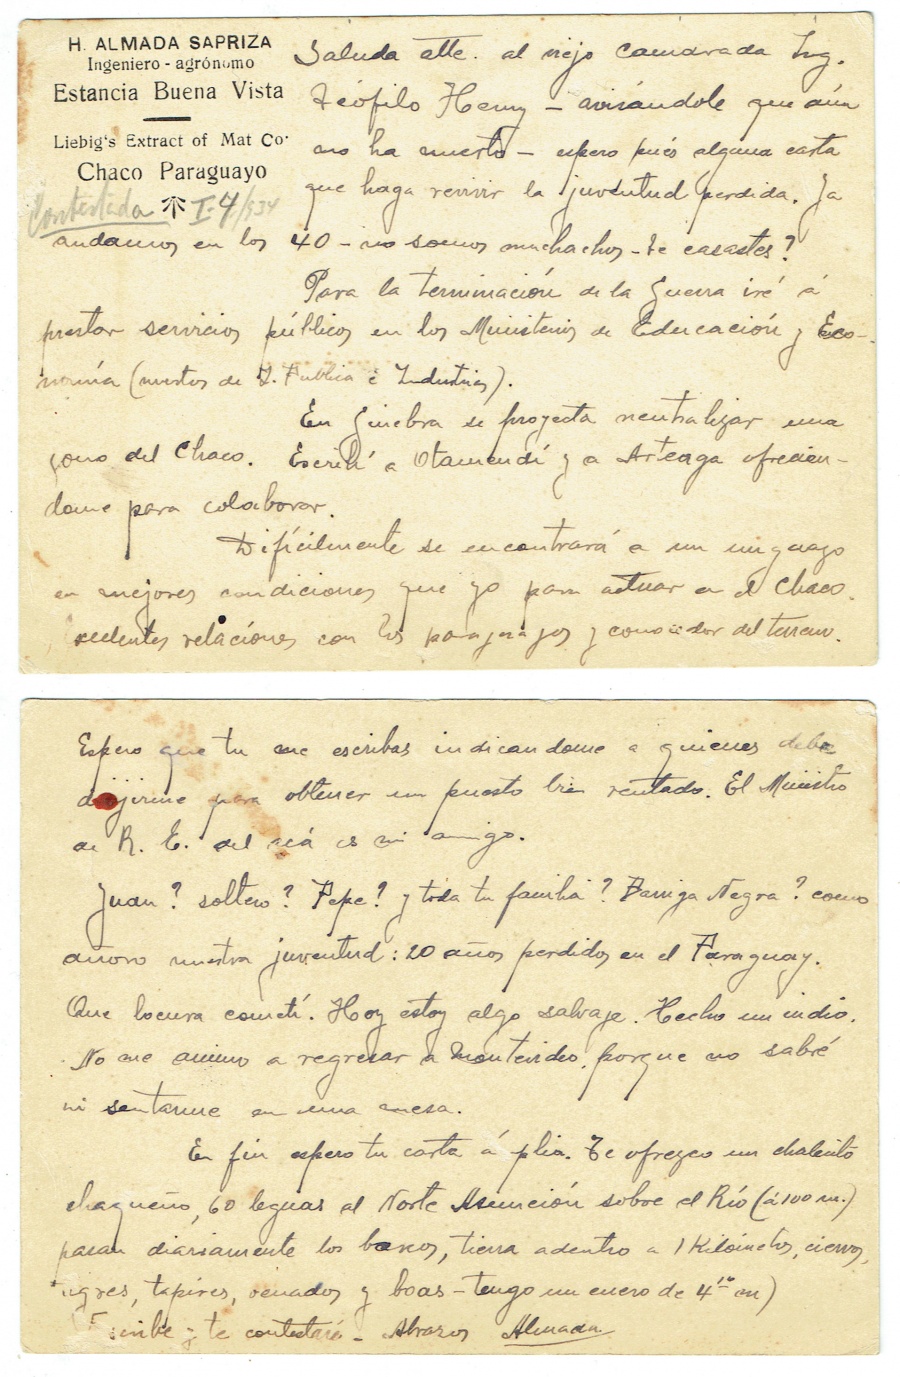 H. ALMADA SAPRIZA
Ingeniero - agrónomo
Estancia Buena Vista
Liebig's Extract of Mat Co.
Chaco Paraguayo
Contestada I-4/934
Saluda atte. al viejo camarada Ing.
Teófilo Henry - avisándole que aún
no ha muerto - espero pués alguna carta
que haga revivir la juventud perdida. Ya
andamos en los 40 - no somos muchachos - te casastes?
Para la terminación de la Guerra iré á
prestar servicios públicos en los Ministerios de Educación y Eco-
nomía (nuestos de I. Publica é Industrias).
En Ginebra se proyecta neutralizar una
zona del Chaco. Escribí a Otamendí y a Arteaga ofrecien-
dome para colaborar.
Difícilmente se encontrará a un uruguayo
en mejores condiciones que yo para actuar en el Chaco.
celentes relaciones con los paraguayos y conocedor del terreno.
Espero que tu me escribas indicandome a quienes debo
dirijirme para obtener un puesto bien rentado. El Ministro
de R. E. del acá es mi amigo.
Juan? soltero? Pepe? y toda tu familia? Barriga Negra? como
añoro nuestra juventud: 20 años perdidos en el Paraguay.
Que locura cometí. Hoy estoy algo salvaje. Hecho un indio.
No me animo a regresar a Montevideo, porque no sabré
ni sentarme en una mesa.
En fin espero tu carta á plia. Te ofrezco un chalecito
chaqueño, 60 leguas al Norte Asunción sobre el Río (á 100 m.)
pasan diariamente los barcos, tierra adentro a 1 Kilómetros, ciervos,
tigres, tapires, venados y boas - tengo un cuero de 4 m)
Escribe y te contestaré - Abrazos Almada